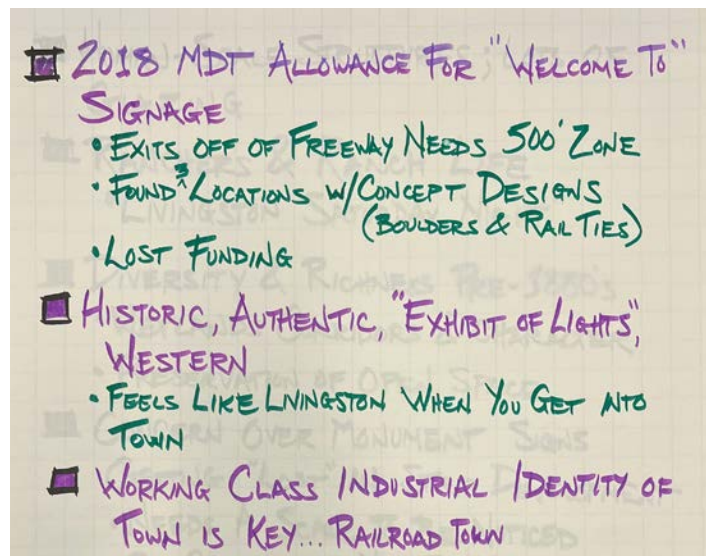 2018 MDT ALLOWANCE FOR "WELCOME TO"
SIGNAGE
• EXITS OFF OF FREEWAY NEEDS 500' ZONE
• FOUND ^3 LOCATIONS W/CONCEPT DESIGNS
(BOULDERS & RAIL TIES)
• LOST FUNDING
HISTORIC, AUTHENTIC, "EXHIBIT OF LIGHTS",
WESTERN
• FEELS LIKE LIVINGSTON WHEN YOU GET INTO
TOWN
WORKING CLASS INDUSTRIAL IDENTITY OF
TOWN IS KEY... RAILROAD TOWN